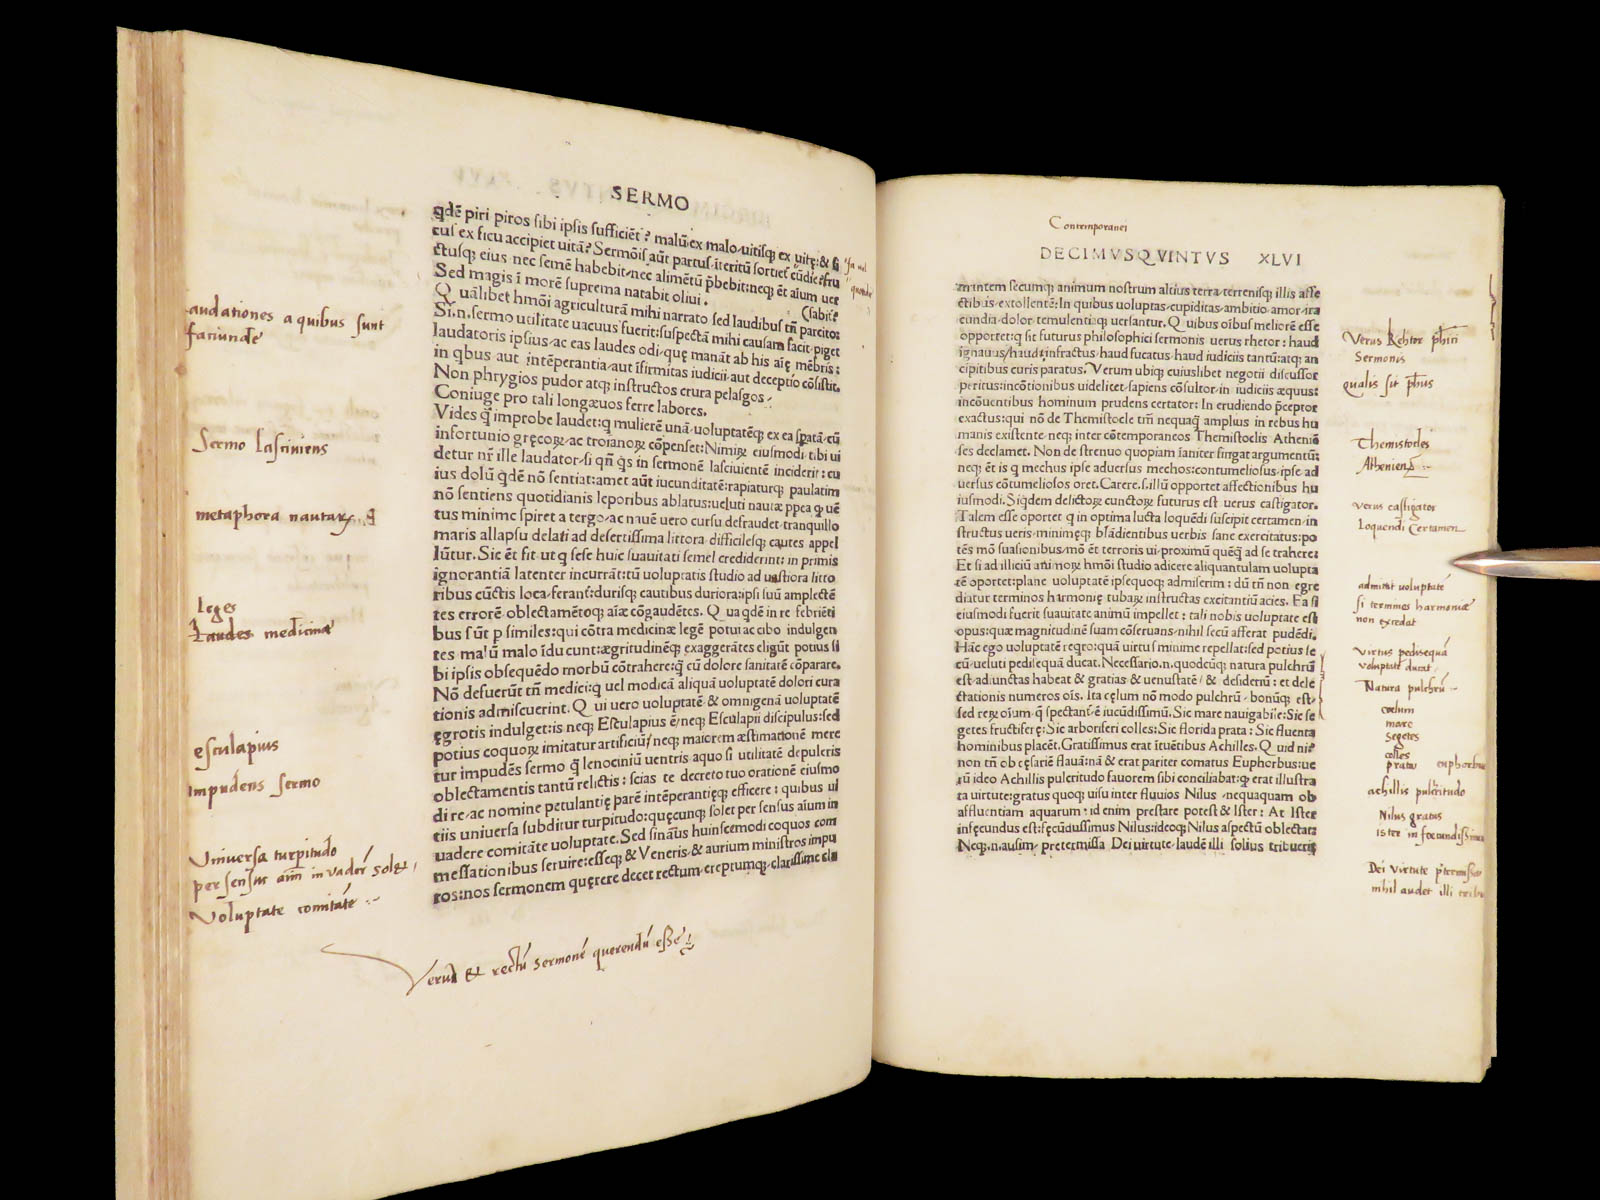 SERMO
qdē piri piros sibi ipsis sufficiēt? malū ex malo/uitisq; ex uite:& fi
cus ex ficu accipiet uitā? Sermōis aūt partus/iteritū sortiet
ctusq; eius/nec semē habebit/nec alimētū p̄bebit:neq; ēt aīum uer
Sed magis ī morē suprema natabit oliui. (sabit?
Quālibet hmōi agriculturā mihi narrato sed laudibus tn̄ parcito:
Si.n.sermo utilitate uacuus fuerit:suspectā mihi causam facit/piget
laudatoris ipsius/ac eas laudes odi/quę manāt ab his aīę mēbris:
in qbus aut intēperantia/aut īfirmitas iudicii/aut deceptio cōsistit.
Non phrygios pudor atq; instructos crura pelasgos:
Coniuge pro tali longæuos ferre labores.
Vides q̄ improbe laudet:q mulierē unā/uoluptatēq; ex ea spatā/cū
infortunio gręcoꝝ/ac troianoꝝ cōpenset:Nimiꝝ eiusmodi tibi ui
detur nr̄ ille laudator/si qn̄ qs in sermonē lasciuientē inciderit: cu
ius dolū qdē nō sentiat:amet aūt iucunditatē:rapiaturq; paulatim
nō sentiens quotidianis leporibus ablatus:ueluti nautæ ppea q uē
tus minime spiret a tergo/ac nauē uero cursu defraudet/tranquillo
maris allapsu delati ad desertissima littora/difficilesq; cautes appel
lūtur. Sic ēt fit/ut q sese huic suauitati semel crediderint: in primis
ignorantiā latenter incurrāt:tū uoluptatis studio ad uastiora litto
ribus cūctis loca/ferant:durisq; cautibus duriora:ipsi suū amplectē
tes errorē/oblectamētoq; aīæ cōgaudētes. Qua qdē in re febriēti
bus sūt psimiles:qui cōtra medicinæ legē potui ac cibo indulgen
tes malū malo īdu cunt:ægritudinēq; exaggerātes eligūt potius si
bi ipsis obsequēdo morbū cōtrahere:q cū dolore sanitatē cōparare.
Nō desuerūt tn̄ medici:q uel modicā aliquā uoluptatē dolori cura
tionis admiscuerint. Qui uero uoluptatē & omnigenā uoluptatē
ęgrotis indulget:is neq; Esculapius ē/neq; Esculapii discipulus:sed
potius coquoꝝ imitatur artificiū/neq; maiorem æstimationē mere
tur impudēs sermo q lenociniū uentris aquo si utilitatē depuleris
oblectamentis tantū relictis: scias te decreto tuo orationē eiusmo
di re/ac nomine petulantię parē intēperantięq; efficere: quibus ui
tiis uniuersa subditur turpitudo:quęcunq; solet per sensus aīum in
uadere comitāte uoluptate. Sed sinamus huiuscemodi coquos com
messationibus seruire:esseq; & Veneris & aurium ministros impu
ros:nos sermonem quęrere decet rectum ereptumq; clarissime cla
Laudationes a quibus sunt
faciundę
Sermo lasciuiens
metaphora nautarꝝ
Leges
Laudes medicinæ
esculapius
impudens sermo
Vniuersa turpitudo
per sensus aīm inuaderē solet
Voluptate comitātē
Verū & rectū sermonē querendū esse
Contemporanei
DECIMVSQVINTVS XLVI
mintem secumq; animum nostrum altius terra/terrenisq; illis affe
ctibus/extollentē:In quibus uoluptas/cupiditas/ambitio/amor/ira
cundia/dolor/temulentiaq; uersantur. Quibus oībus meliorē esse
opportet:q sit futurus philosophici sermonis uerus rhetor: haud
ignauus/haud infractus/haud fucatus/haud iudiciis tantū:atq; an
cipitibus curis paratus. Verum ubiq; cuiuslibet negotii discussor
peritus:incōtionibus uidelicet/sapiens cōsultor/in iudiciis æquus:
incōuentibus hominum prudens certator: In erudiendo p̄ceptor
exactus:qui nō de Themistocle tm̄ nequaq̄ amplius in rebus hu
manis existente/neq; inter cōtemporaneos Themistoclis Atheniē
ses declamet. Non de strenuo quopiam īaniter fingat argumentū:
neq; ēt is q mechus ipse aduersus mechos:contumeliosus/ipse ad
uersus cōtumeliosos oret. Carere.s.illū opportet affectionibus hu
iusmodi. Siqdem delictoꝝ cunctoꝝ futurus est uerus castigator.
Talem esse oportet q in optima lucta loquēdi suscipit certamen/in
structus ueris/minimęq; blādientibus uerbis sane exercitatus:po
tēs mō suasionibus/mō ēt terroris ui proximū quēq ad se trahere:
Et si ad illiciū animoꝝ hmōi studio adicere aliquantulam uolupta
tē oportet:plane uoluptatē ipsequoq; admiserim: dū tn̄ non egre
diatur terminos harmonię tubaꝝ instructas excitantiū acies. Ea si
eiusmodi fuerit suauitate animū impellet: tali nobis uoluptate est
opus:quæ magnitudinē suam cōseruans/nihil secū afferat pudēdi.
Hāc ego uoluptatē reqro:quā uirtus minime repellat:sed potius se
cū/ueluti pedisequā ducat. Necessario.n.quodcūq; natura pulchrū
est/adiunctas habeat & gratias & uenustatē/ & desideriū: et dele
ctationis numeros oīs. Ita cęlum nō modo pulchrū/bonūq; est/
sed reꝝ oīum/q spectant/ē iucūdissimū. Sic mare nauigabile:Sic se
getes fructiferę:Sic arboriferi colles:Sic florida prata: Sic fluenta
hominibus placēt.Gratissimus erat ītuētibus Achilles. Quid nie
non tn̄ ob cęsariē flauā:nā & erat pariter comatus Euphorbus:ue
rū ideo Achillis pulcritudo fauorem sibi conciliabat:q erat illustra
ta uirtute:gratus quoq; uisu inter fluuios Nilus/nequaquam ob
affluentiam aquarum:id enim prestare potest & Ister: At Ister
infęcundus est:fęcūdissimus Nilus:ideoq; Nilus aspectū oblectat.
Neq;.n.ausim/pretermissa Dei uirtute/laudē illi solius tribueris
Verus Rhetor
Sermonis
qualis sit
Themistocles
Atheniens
verus castigator
loquendi Certamen
admitit voluptatē
si terminos harmoniæ
non excedat
Virtus pedisequā
voluptatē ducat
Natura pulchrū
cœlum
mare
segetes
colles
prata euphorbus
achillis pulcritudo
Nilus gratus
ister infœcundissimus
Dei virtute
nihil audet illi